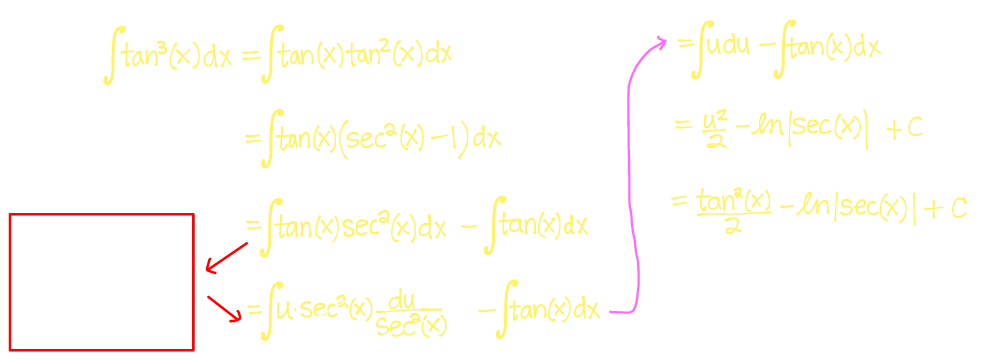 ∫tan³(x)dx = ∫tan(x)tan²(x)dx
= ∫tan(x)(sec²(x) − 1)dx
= ∫tan(x)sec²(x)dx − ∫tan(x)dx
= ∫u·sec²(x) du/sec²(x) − ∫tan(x)dx
= ∫u du − ∫tan(x)dx
= u²/2 − ln|sec(x)| + C
= tan²(x)/2 − ln|sec(x)| + C